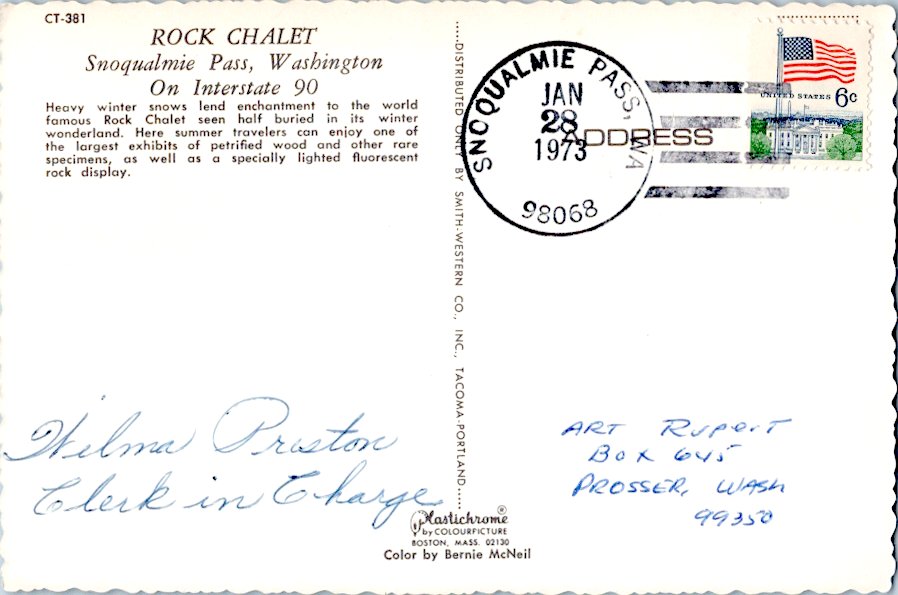 CT-381
ROCK CHALET
Snoqualmie Pass, Washington
On Interstate 90
Heavy winter snows lend enchantment to the world
famous Rock Chalet seen half buried in its winter
wonderland. Here summer travelers can enjoy one of
the largest exhibits of petrified wood and other rare
specimens, as well as a specially lighted fluorescent
rock display.
Wilma Preston
Clerk in Charge
DISTRIBUTED ONLY BY SMITH-WESTERN CO., INC., TACOMA-PORTLAND
Plastichrome®
by COLOURPICTURE
BOSTON, MASS. 02130
Color by Bernie McNeil
SNOQUALMIE PASS, WA
JAN
28
1973
98068
ADDRESS
UNITED STATES 6c
ART Rupert
Box 645
PROSSER, WASH
99350